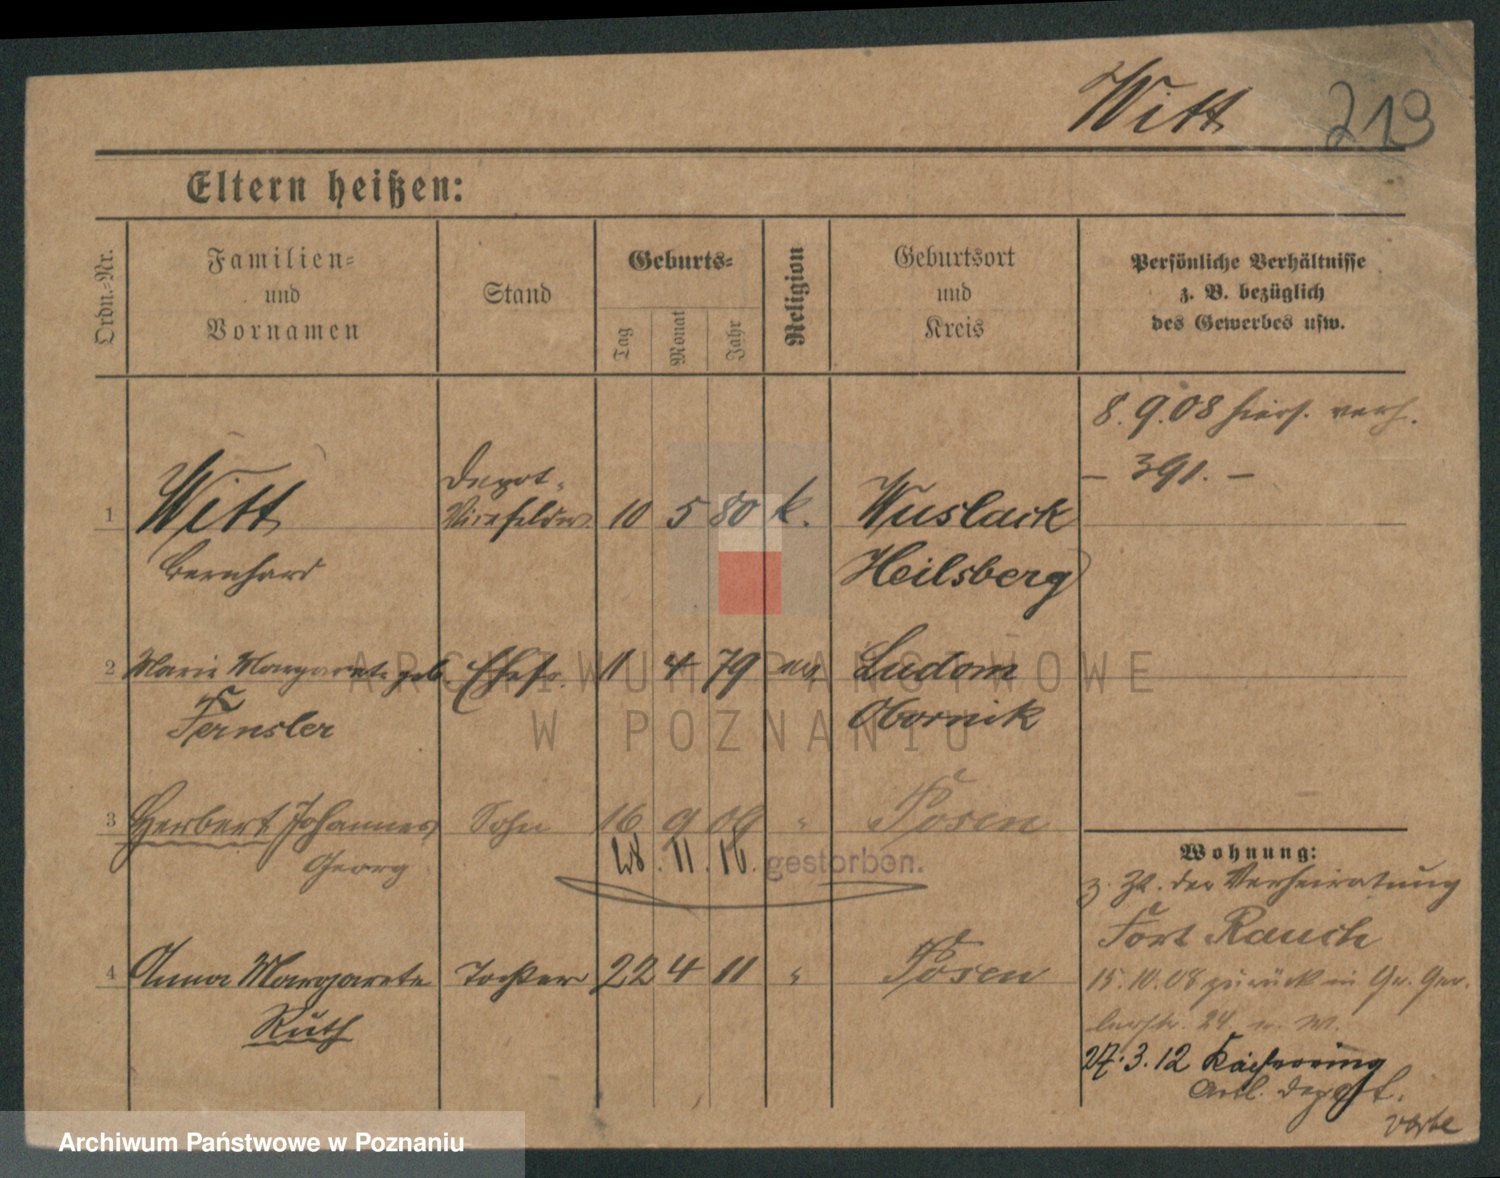 Witt 213
Eltern heißen:
Ordn.-Nr.
Familien-
und
Vornamen
Stand
Geburts-
Tag
Monat
Jahr
Religion
Geburtsort
und
Kreis
Persönliche Verhältnisse
z. B. bezüglich
des Gewerbes usw.
8. 9. 08 hiers. verh.
– 391. –
1 Witt Depot- 10 5 80 k. Wuslack
Bernhard Vizefeldw. Heilsberg
2 Marie Margarete geb. Ehefr. 11 4 79 ev. Ludom
Fensler Obornik
3 Herbert Johannes Sohn 16 9 09 " Posen
Georg
28. 11. 16. gestorben.
4 Anna Margarete Tochter 22 4 11 " Posen
Ruth
Wohnung:
z. Zt. der Verheiratung
Fort Rauch
15. 10. 08 zurück in Gr. Ger-
berstr. 24 n. W.
27. 3. 12
Artl. Depot.
verte
ARCHIWUM PAŃSTWOWE
W POZNANIU
Archiwum Państwowe w Poznaniu